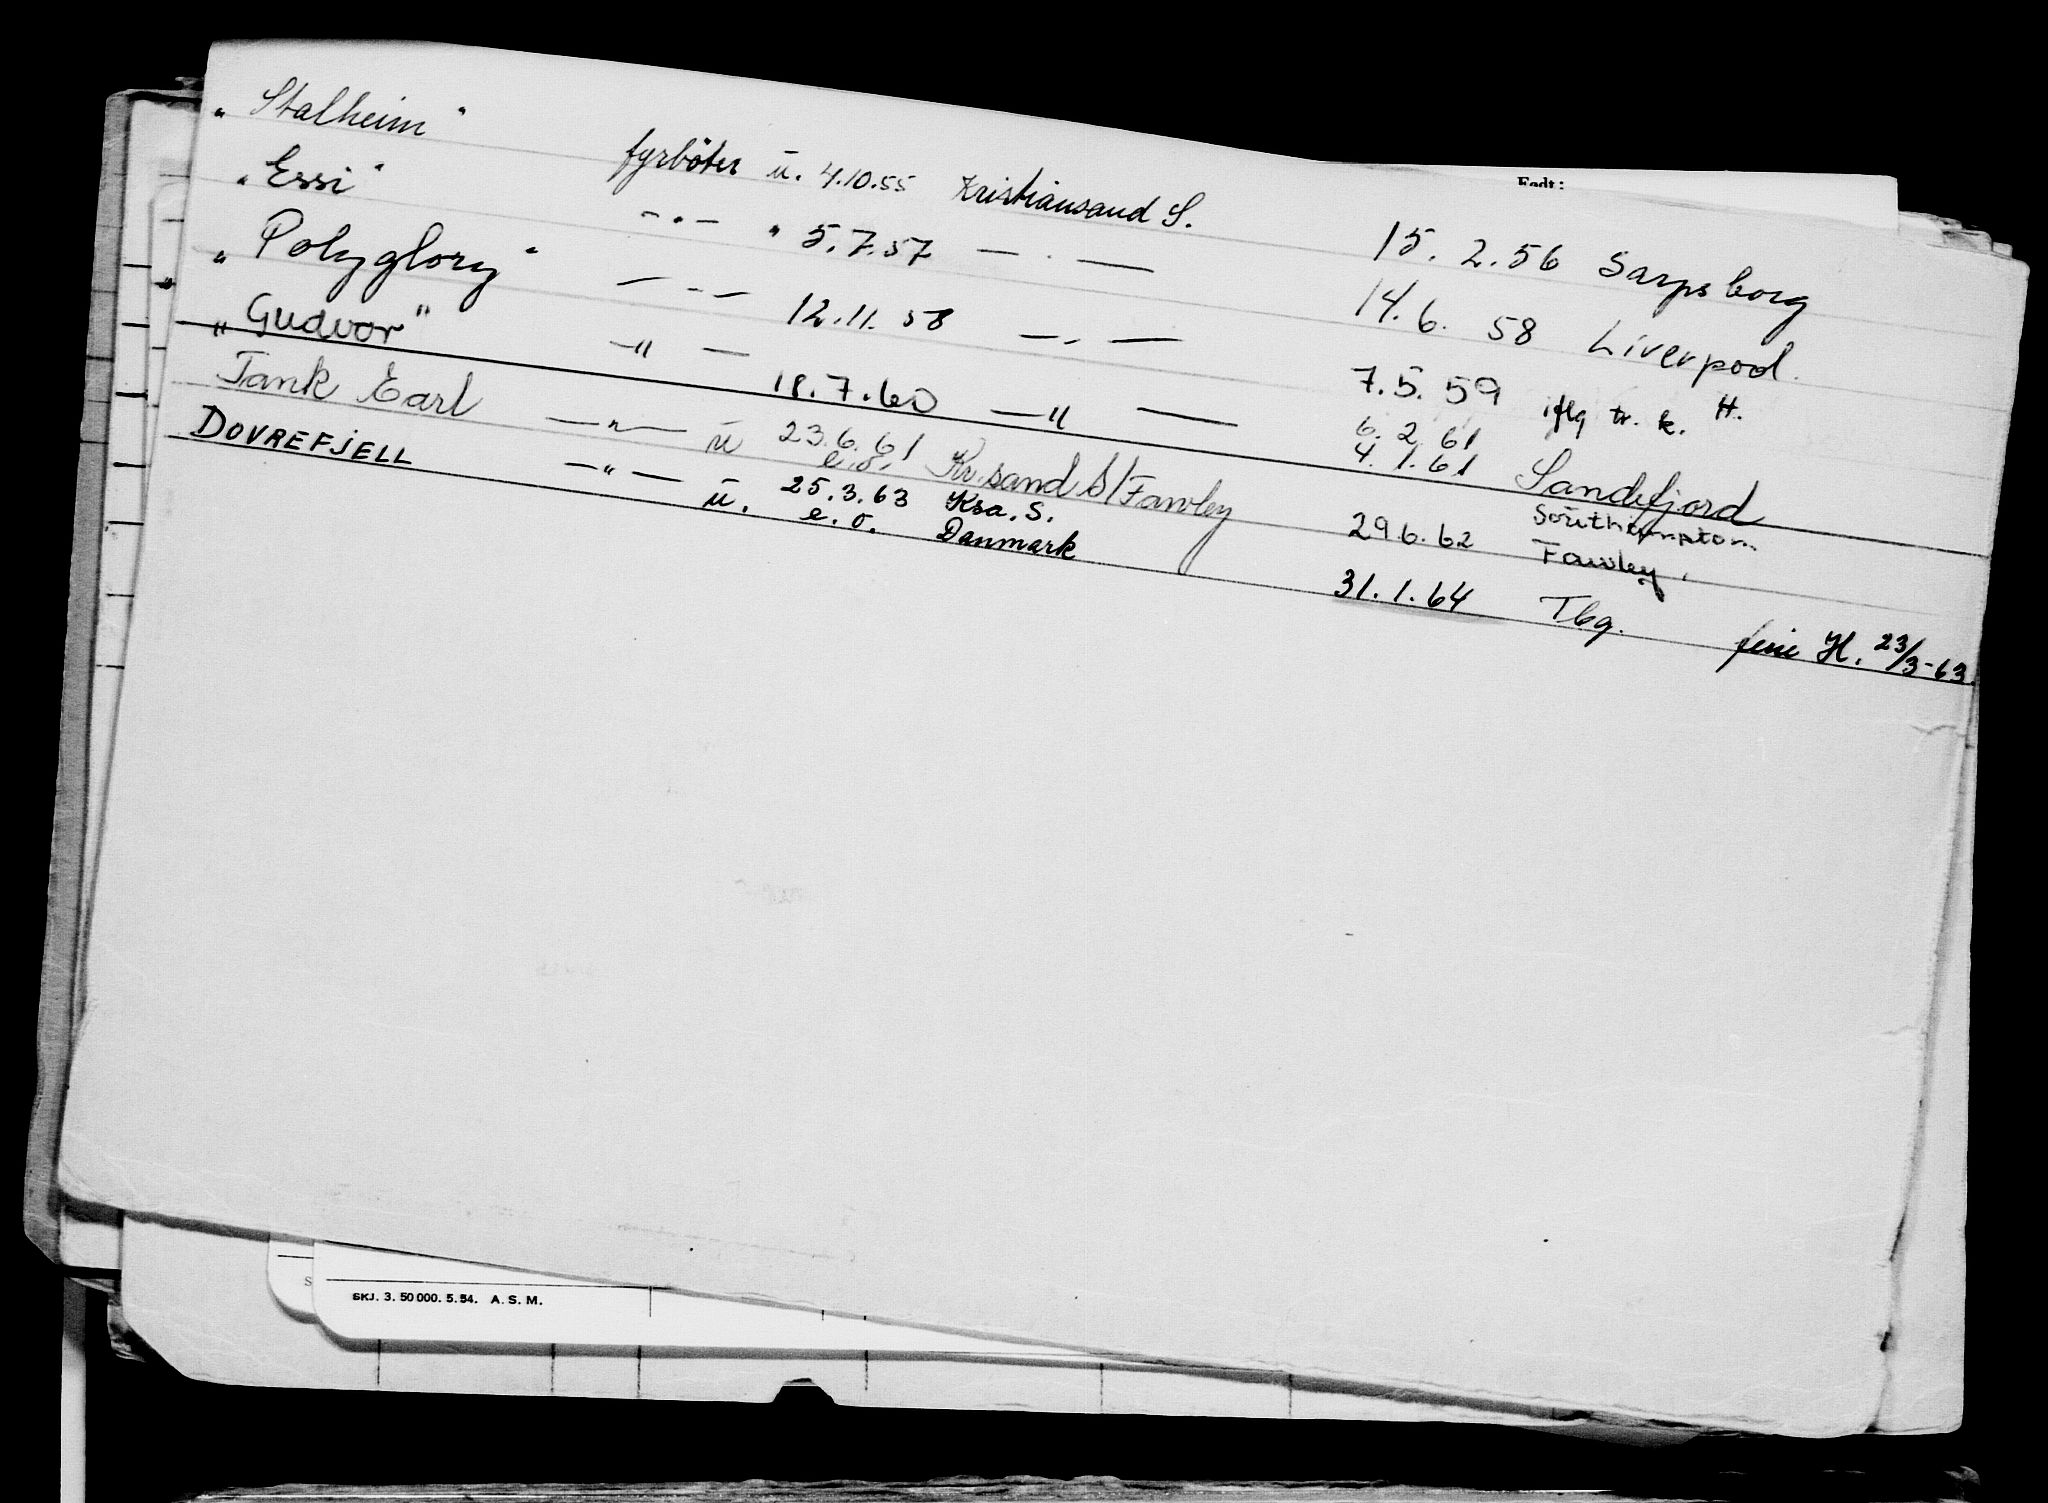 Født:
"Stalheim" fyrböter u. 4.10.55 Kristiansand S. 15.2.56 Sarpsborg
"Essi" -"- " 5.7.57 -"- 14.6.58 Liverpool.
"Polyglory" -"- 12.11.58 -"- 7.5.59 iflg tr. k. H.
"Gudvor" -"- 18.7.60 -"- 6.2.61 Sandefjord
4.1.61
Tank Earl -"- u 23.6.61 Kr.sand S/Fawley 29.6.62 Southampton
e.o. Fawley.
DOVREFJELL -"- u. 25.3.63 Ksa. S. 31.1.64 Tbg. ferie H. 23/3-63.
e.o. Danmark
S
SKJ. 3. 50 000. 5. 54. A. S. M.